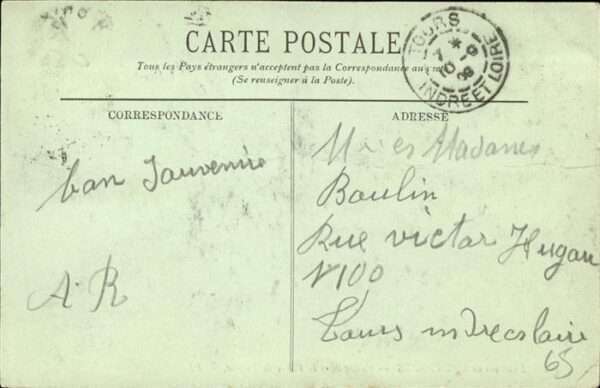 CARTE POSTALE
Tous les Pays étrangers n'acceptent pas la Correspondance au
(Se renseigner à la Poste).
TOURS
7 *
10-9
09
INDRE ET LOIRE
CORRESPONDANCE
ADRESSE
ban Souvenire
A.R
M es Madames
Boulin
Rue victor Hugau
N 100
Tours indreslaire
65